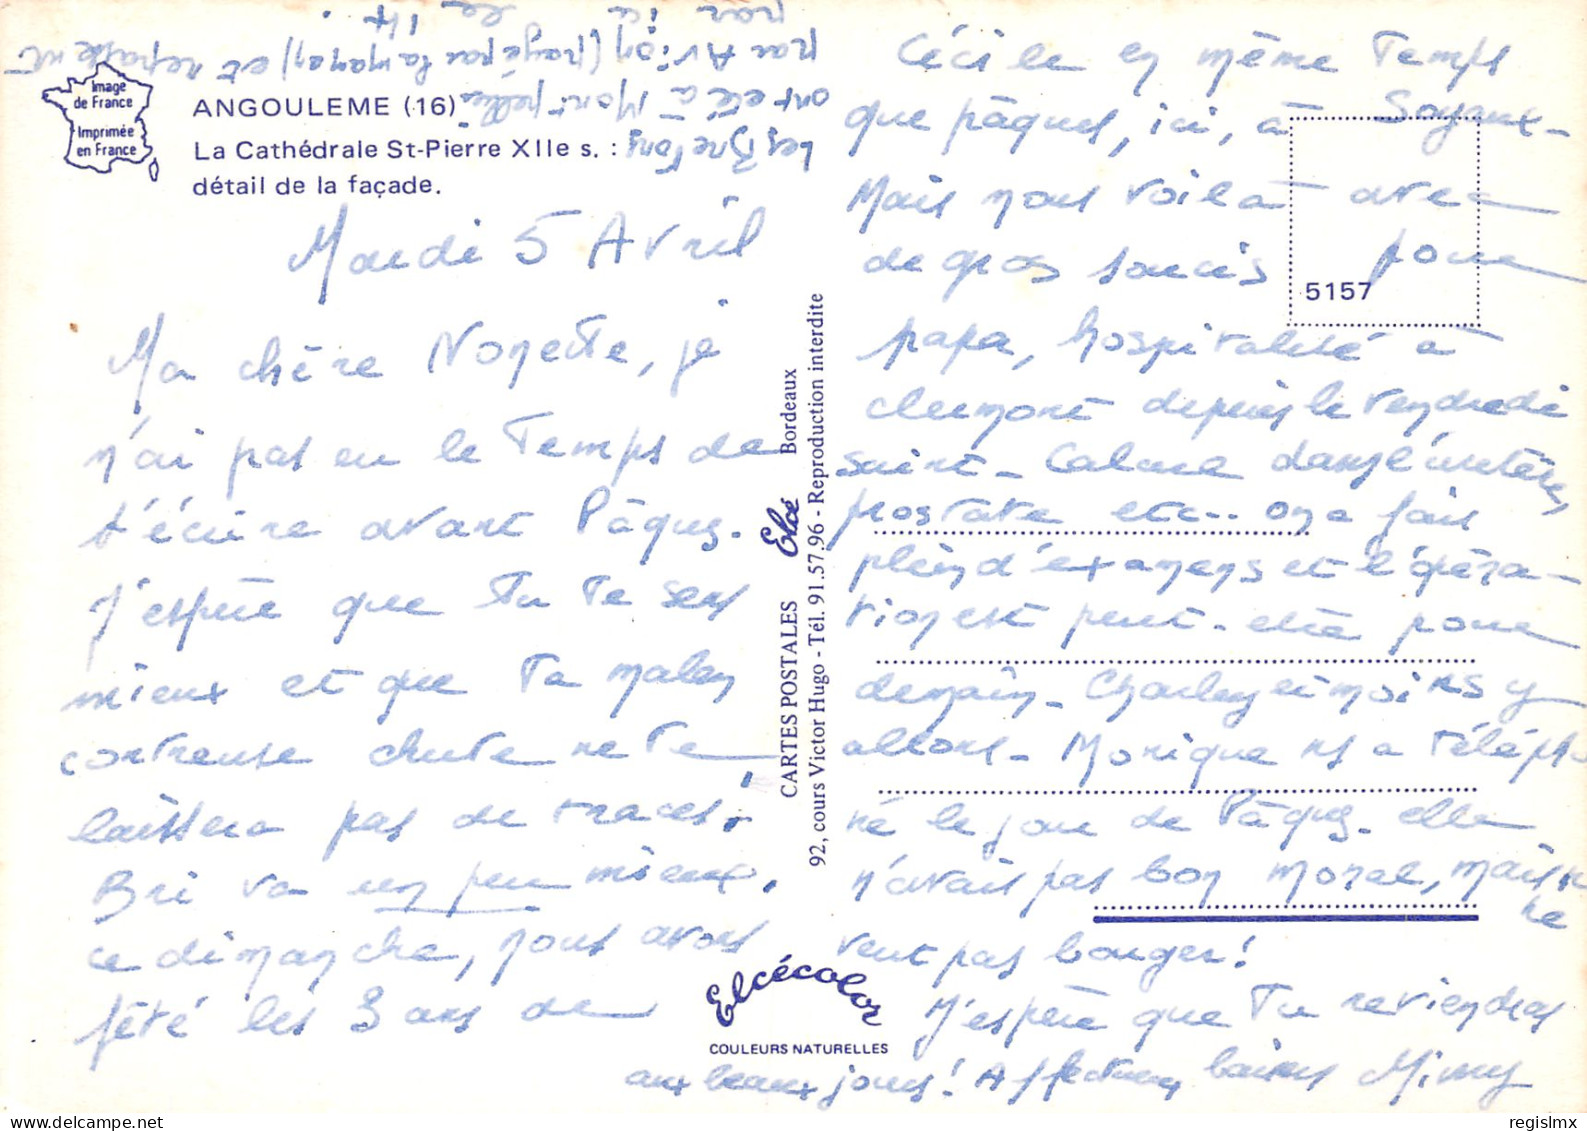 Image
de France
Imprimée
en France
ANGOULEME (16)
La Cathédrale St-Pierre XIIe s. :
détail de la façade.
Mardi 5 Avril
Ma chère Nonette, je
n'ai pas eu le temps de
t'écrire avant Pâques.
J'espère que tu te sens
mieux et que ta malen
contreuse chute ne te
laissera pas de traces.
Bri va un peu mieux.
ce dimanche, nous avons
fêté les 3 ans de
Cécile en même temps
que pâques, ici, à Soyaux_
Mais nous voilà avec
de gros soucis pour
papa, hospitalisé à
clermont depuis le vendredi
saint_ Calcul dans l'uretère,
prostate etc.. on a fait
plein d'examens et l'opéra-
tion est peut-être pour
demain_ Charley et moi ns y
allons_ Monique ns a télépho
né le jour de Pâques_ elle
n'avait pas bon moral, mais
ne
veut pas bouger!
J'espère que tu reviendras
aux beaux jours! Affectueux baisers Mimy
Les Bretons
ont été à Montpellier
par Avion (payé par la maman) et repassent
par ici le 14
5157
CARTES POSTALES Elcé Bordeaux
92, cours Victor Hugo - Tél. 91.57.96 - Reproduction interdite
Elcécolor
COULEURS NATURELLES
regislmx